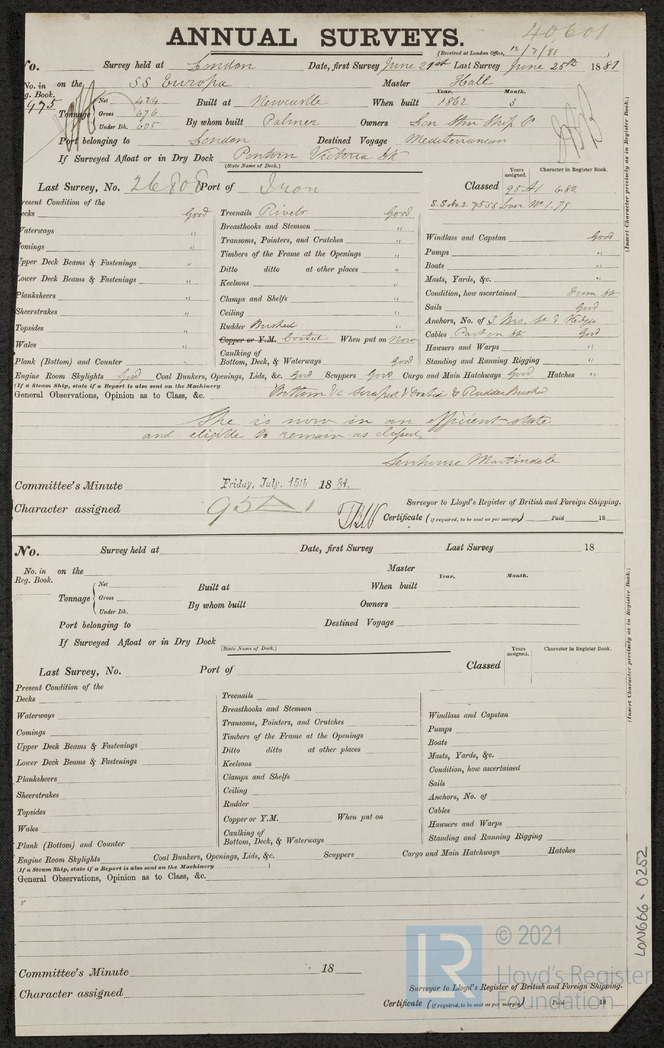 ANNUAL SURVEYS.
40601
(Received at London Office, 12/7/81)
No. Survey held at London Date, first Survey June 21st Last Survey June 25th 1881
No. in Reg. Book. 975 on the SS Europa Master Hall
Year. Month.
Tonnage Net 424 Gross 676 Under Dk. 605 Built at Newcastle When built 1862 3
By whom built Palmer Owners Gen Stm Ship Co
Port belonging to London Destined Voyage Mediterranean
If Surveyed Afloat or in Dry Dock Victoria Dk
(State Name of Dock.)
Years assigned. Character in Register Book.
Last Survey, No. 26808 Port of Iron Classed 95 A1 6.80
(Insert Character precisely as in Register Book.)
Present Condition of the
Decks Good
Waterways "
Comings "
Upper Deck Beams & Fastenings "
Lower Deck Beams & Fastenings "
Planksheers "
Sheerstrakes "
Topsides "
Wales "
Plank (Bottom) and Counter
Treenails Rivets Good
Breasthooks and Stemson "
Transoms, Pointers, and Crutches "
Timbers of the Frame at the Openings "
Ditto ditto at other places "
Keelsons "
Clamps and Shelfs "
Ceiling "
Rudder Bushed "
Copper or Y.M. Coated When put on Now
Caulking of Bottom, Deck, & Waterways Good
Windlass and Capstan Good
Pumps "
Boats "
Masts, Yards, &c. "
Condition, how ascertained From Dk
Sails Good
Anchors, No. of 3 Brs, St & Kedges
Cables Part on Dk Good
Hawsers and Warps "
Standing and Running Rigging "
Engine Room Skylights Good Coal Bunkers, Openings, Lids, &c. Good Scuppers Good Cargo and Main Hatchways Good Hatches "
(If a Steam Ship, state if a Report is also sent on the Machinery
General Observations, Opinion as to Class, &c. Bottom &c Scraped & Coated & Rudder Bushed
She is now in an efficient state
and eligible to remain as classed.
Senhouse Martindale
Committee's Minute Friday, July, 15th 1881.
Character assigned 95 A 1
Surveyor to Lloyd's Register of British and Foreign Shipping.
Certificate (if required, to be sent as per margin) Paid 18
No. Survey held at Date, first Survey Last Survey 18
No. in Reg. Book. on the Master
Year. Month.
Tonnage Net Gross Under Dk. Built at When built
By whom built Owners
Port belonging to Destined Voyage
If Surveyed Afloat or in Dry Dock
(State Name of Dock.)
Years assigned. Character in Register Book.
Last Survey, No. Port of Classed
(Insert Character precisely as in Register Book.)
Present Condition of the
Decks
Waterways
Comings
Upper Deck Beams & Fastenings
Lower Deck Beams & Fastenings
Planksheers
Sheerstrakes
Topsides
Wales
Plank (Bottom) and Counter
Treenails
Breasthooks and Stemson
Transoms, Pointers, and Crutches
Timbers of the Frame at the Openings
Ditto ditto at other places
Keelsons
Clamps and Shelfs
Ceiling
Rudder
Copper or Y.M. When put on
Caulking of Bottom, Deck, & Waterways
Windlass and Capstan
Pumps
Boats
Masts, Yards, &c.
Condition, how ascertained
Sails
Anchors, No. of
Cables
Hawsers and Warps
Standing and Running Rigging
Engine Room Skylights Coal Bunkers, Openings, Lids, &c. Scuppers Cargo and Main Hatchways Hatches
(If a Steam Ship, state if a Report is also sent on the Machinery
General Observations, Opinion as to Class, &c.
Committee's Minute 18
Character assigned
Surveyor to Lloyd's Register of British and Foreign Shipping.
Certificate (if required, to be sent as per margin) Paid 18
LON666-0252
LR
© 2021
Lloyd's Register
Foundation